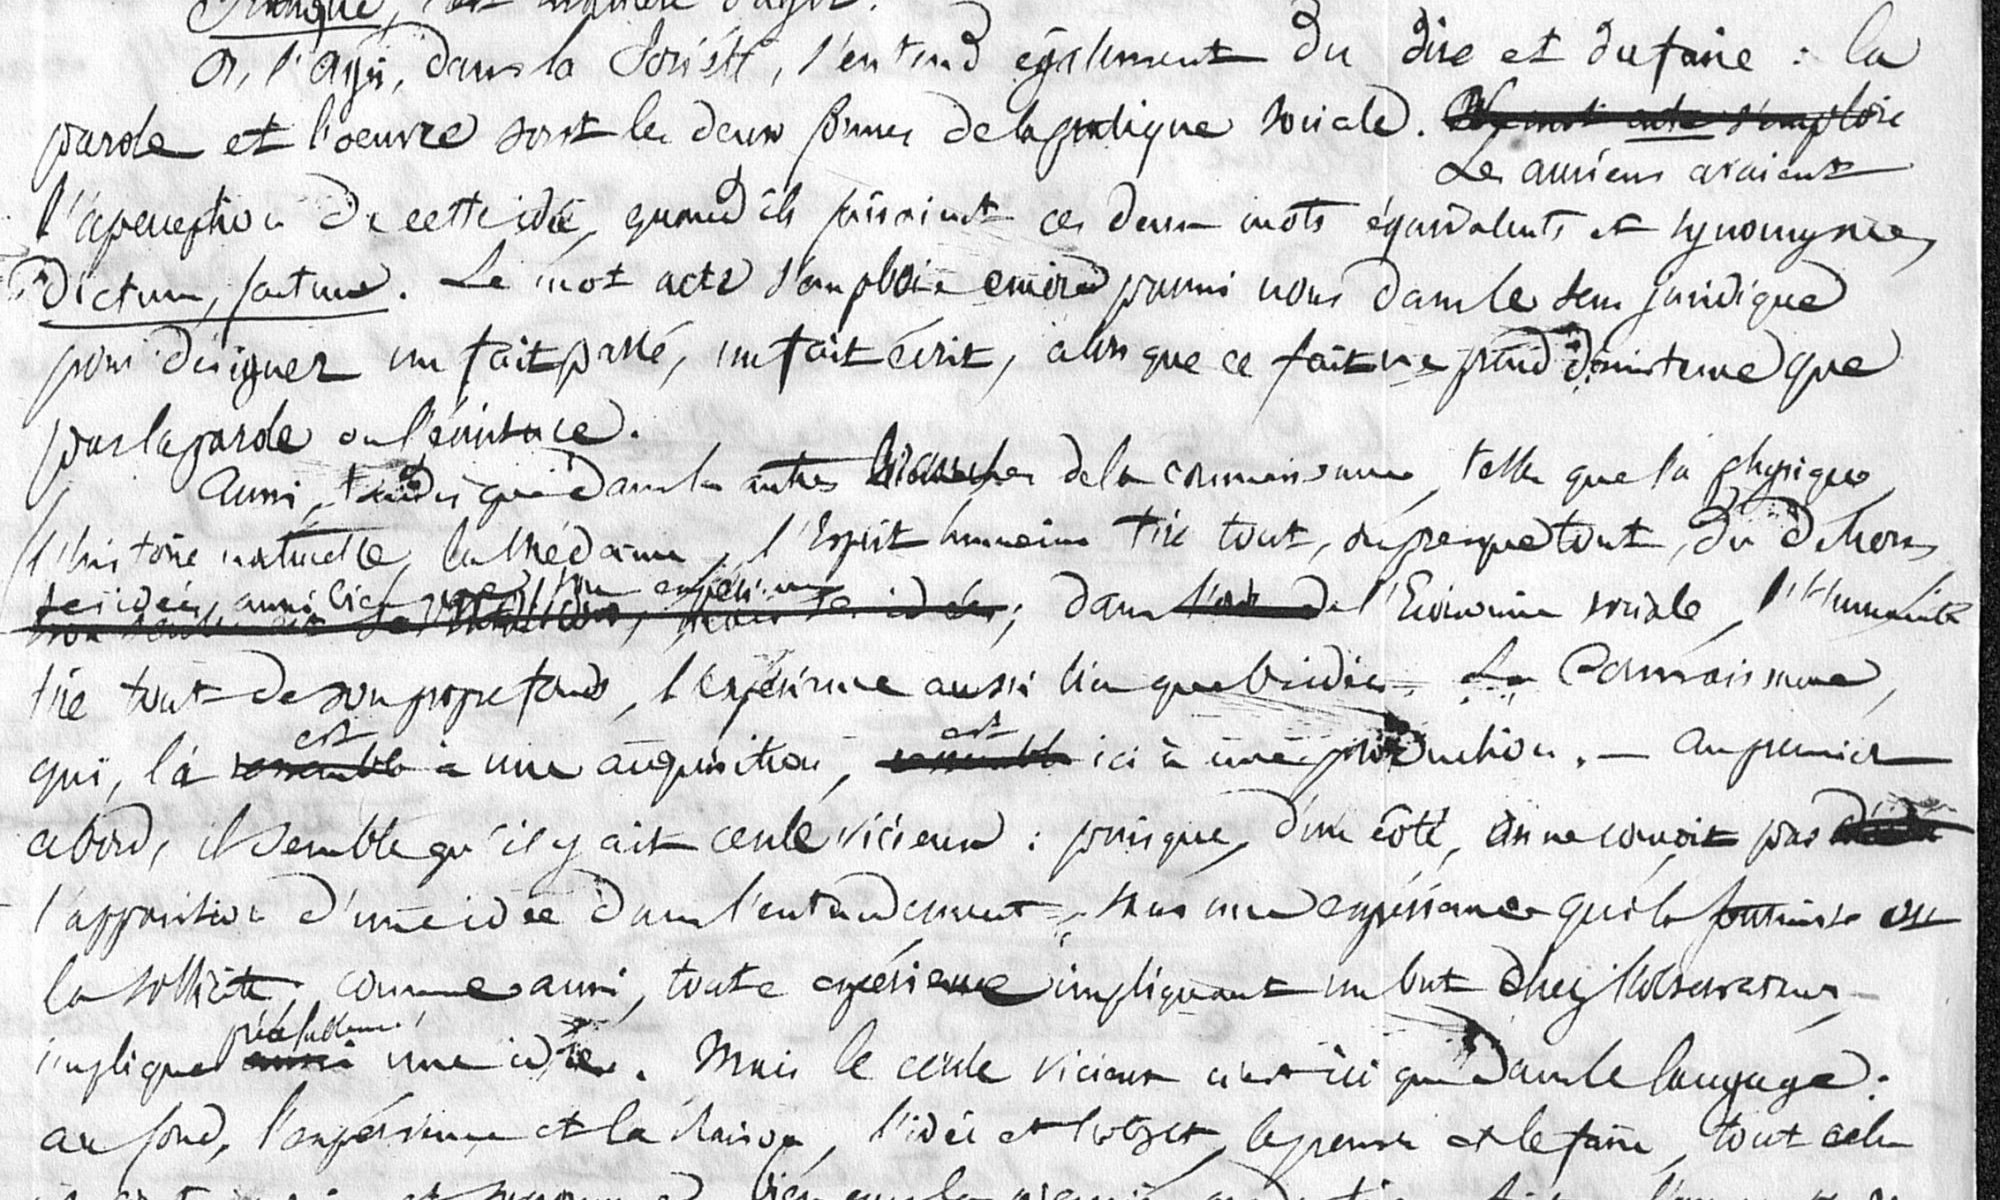 Pratique, c'est manière d'agir.
Or, l'Agir, dans la Société, s'entend également du dire et du faire : la
parole et l'oeuvre sont les deux formes de la pratique sociale. Le mot acte s'emploie
Les anciens avaient
l'aperception de cette idée, quand ils faisaient ces deux mots équivalents et synonymes,
dictum, factum. Le mot acte s'emploie encore parmi nous dans le sens juridique
pour désigner un fait passé, un fait écrit, alors que ce fait ne prend d'existence que
par la parole ou l'écriture.
Aussi, tandis que dans les autres branches de la connaissance, telles que la physique,
l'histoire naturelle, la médecine, l'Esprit humain tire tout, ou presque tout, du dehors,
ses idées, aussi bien que son expérience
; dans l'ordre de l'Economie sociale, l'Humanité
tire tout de son propre fonds, l'expérience aussi bien que les idées. La Connaissance,
est est
qui, là ressemble à une acquisition, ressemble ici à une production. — Au premier
abord, il semble qu'il y ait cercle vicieux : puisque, d'un côté, on ne conçoit pas
l'apparition d'une idée dans l'entendement, sans une expérience qui la fournisse ou
la sollicite, comme aussi, toute expérience impliquant un but chez l'observateur,
préalablement,
implique aussi une idée. Mais le cercle vicieux n'est ici que dans le langage :
au fond, l'expérience et la Raison, l'idée et l'objet, le penser et le faire, tout cela